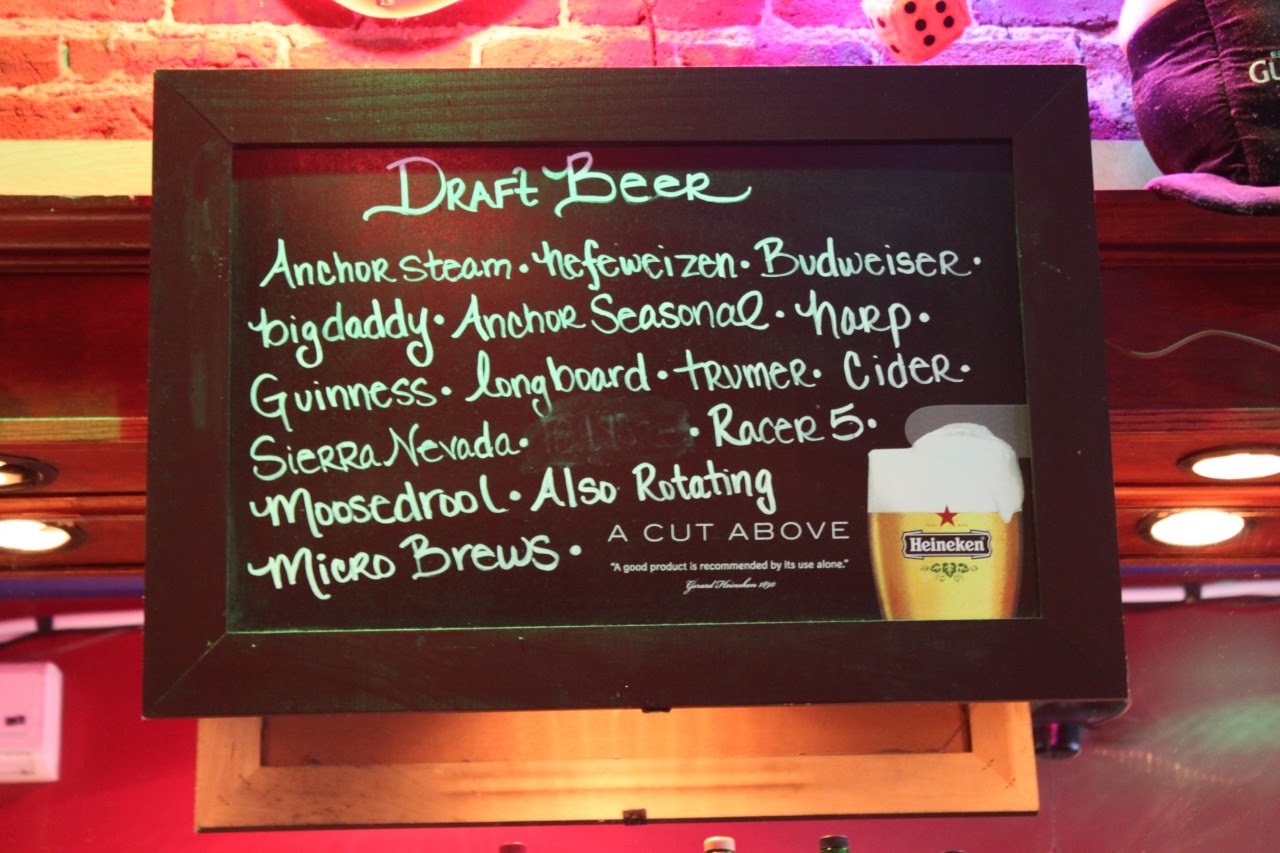 Draft Beer
Anchor Steam · hefeweizen · Budweiser ·
bigdaddy · Anchor Seasonal · harp ·
Guinness · longboard · trumer · Cider ·
Sierra Nevada · · Racer 5 ·
Moosedrool · Also Rotating
Micro Brews ·
A CUT ABOVE
"A good product is recommended by its use alone."
Gerard Heineken 1890
Heineken
GU